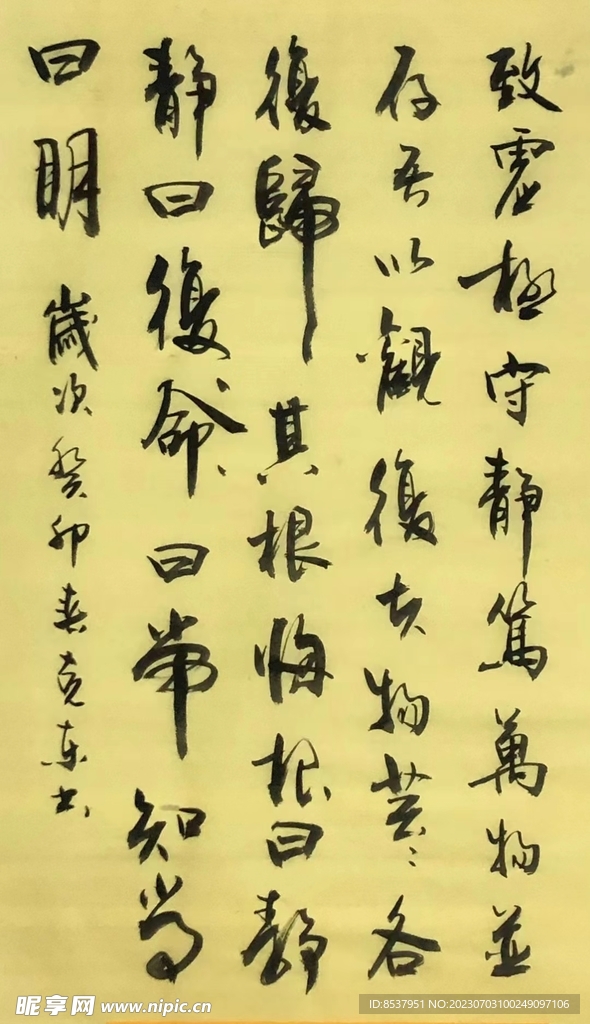 致虛極守靜篤萬物並
存吾以觀復夫物芸〻各
復歸其根悔根曰靜
靜曰復命曰常知常
曰明 歲次癸卯春克东书
昵享网 www.nipic.cn
ID:8537951 NO:20230703100249097106